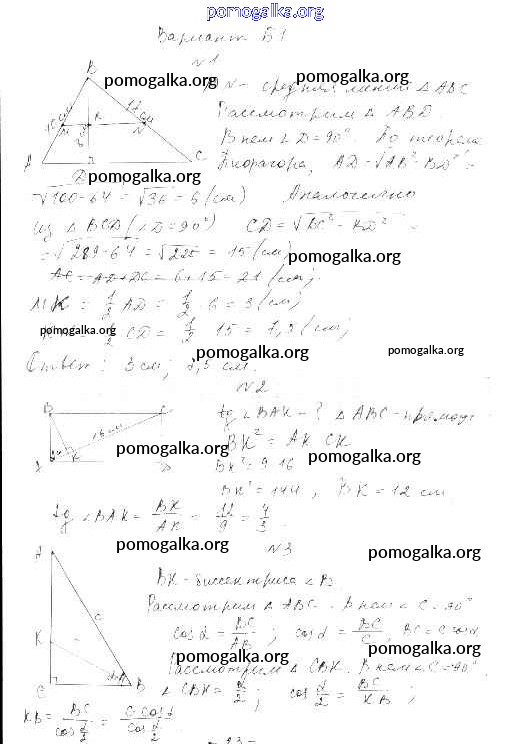 pomogalka.org
Вариант Б1
№1
pomogalka.org
N - средняя линия △ ABC
Рассмотрим △ ABD.
В нем ∠D = 90°. По теореме
Пифагора, AD = √AB² - BD² =
pomogalka.org
√100-64 = √36 = 6 (см) Аналогично
из △ BCD (∠D = 90°) CD = √BC² - BD² =
= √289-64 = √225 = 15 (см)
pomogalka.org
AC = AD + DC = 6 + 15 = 21 (см).
MK = 1/2 AD = 1/2 · 6 = 3 (см)
pomogalka.org
1/2 CD = 1/2 · 15 = 7,5 (см)
pomogalka.org
pomogalka.org
Ответ: 3 см; 7,5 см.
№2
B C
16 см
K
tg ∠BAK - ? △ ABC -
BK² = AK · CK
pomogalka.org
pomogalka.org
BK² = 9 · 16
BK² = 144, BK = 12 см
tg ∠BAK = BK/AK = 12/9 = 4/3.
pomogalka.org
№3
pomogalka.org
A
BK - биссектриса ∠B
Рассмотрим △ ABC. В нем ∠C = 90°
cos α = BC/AB; cos α = BC/c, BC = c cos α
c
K
C B
pomogalka.org
Рассмотрим △ CBK. В нем ∠C = 90°
∠ CBK = α/2; cos α/2 = BC/KB;
KB = BC/cos α/2 = c · cos α/cos α/2
pomogalka.org
- 23 -